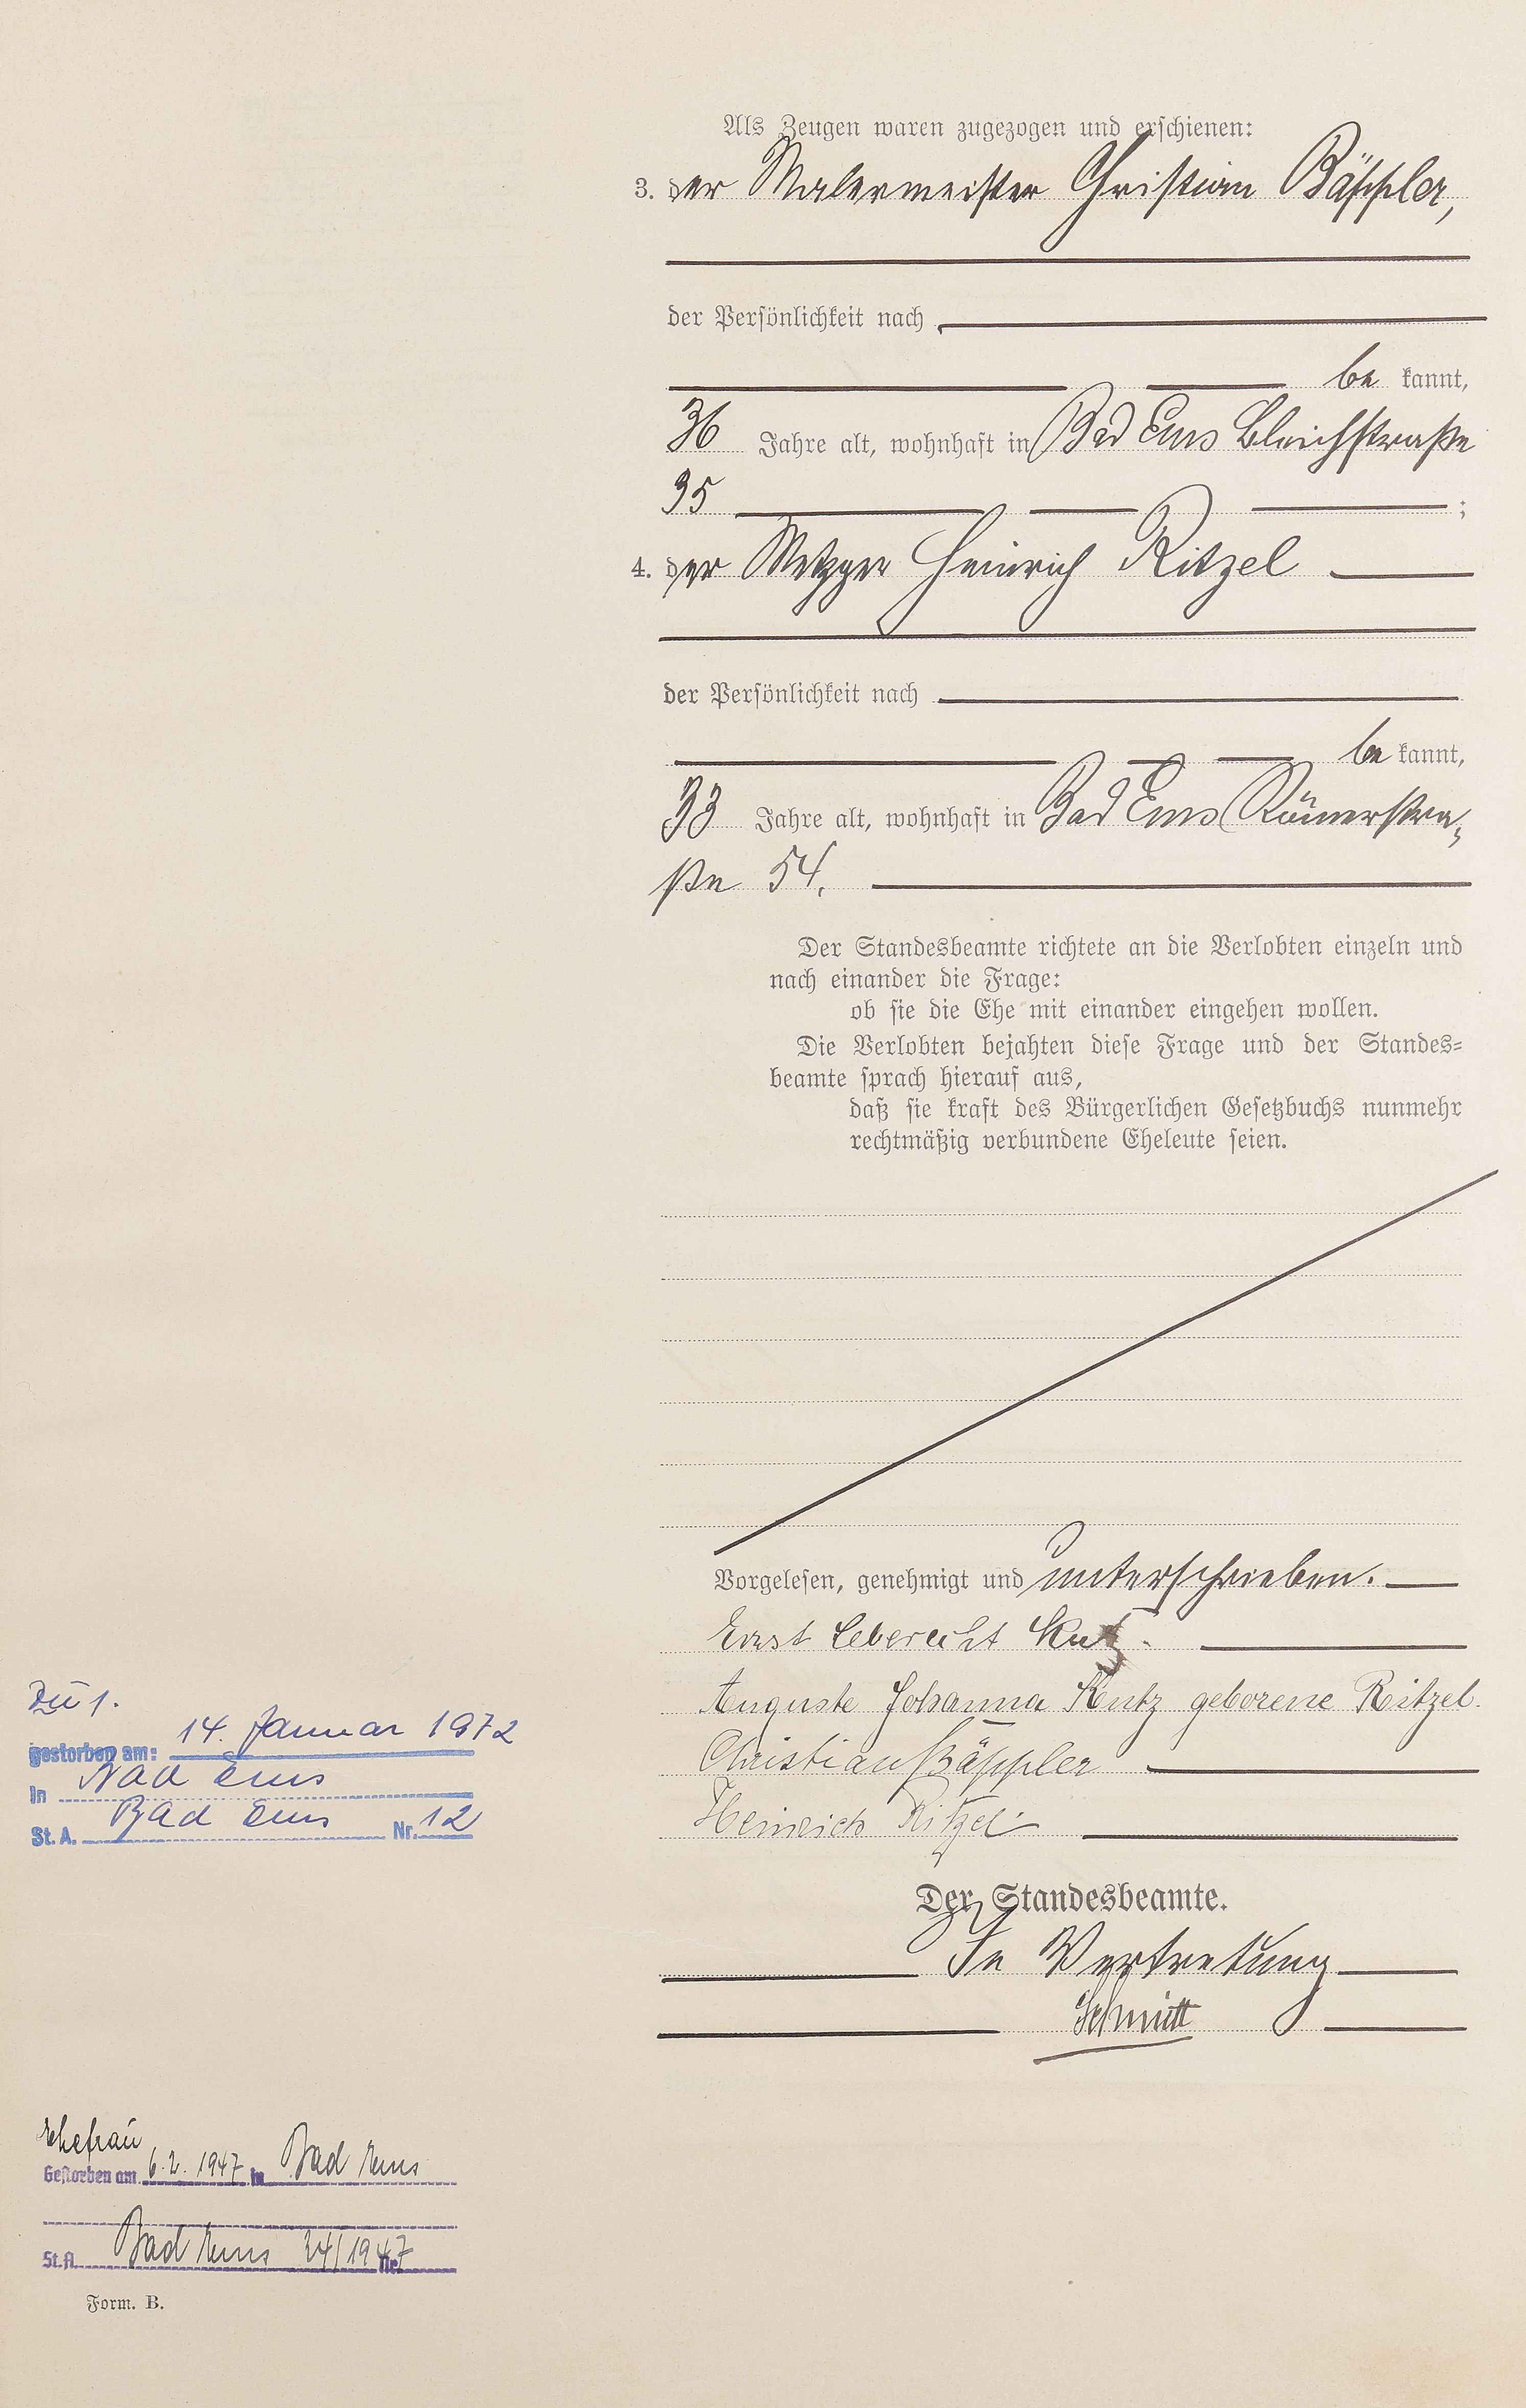 Als Zeugen waren zugezogen und erschienen:
3. der Malermeister Christian Bäppler,
der Persönlichkeit nach
be kannt,
36 Jahre alt, wohnhaft in Bad Ems Bleichstraße
35 ;
4. der Metzger Heinrich Ritzel
der Persönlichkeit nach
be kannt,
33 Jahre alt, wohnhaft in Bad Ems Römerstra-
ße 54.
Der Standesbeamte richtete an die Verlobten einzeln und
nach einander die Frage:
ob sie die Ehe mit einander eingehen wollen.
Die Verlobten bejahten diese Frage und der Standes-
beamte sprach hierauf aus,
daß sie kraft des Bürgerlichen Gesetzbuchs nunmehr
rechtmäßig verbundene Eheleute seien.
Vorgelesen, genehmigt und unterschrieben.
Ernst Leberecht Kutz.
Auguste Johanna Kutz geborene Ritzel.
Christian Bäppler
Heinrich Ritzel
Der Standesbeamte.
In Vertretung
Schmitt
Zu 1.
gestorben am: 14. Januar 1972
in Bad Ems
St. A. Bad Ems Nr. 12
Ehefrau
Gestorben am 6.2. 1947 in Bad Ems
St.A. Bad Ems 24/1947 Nr.
Form. B.